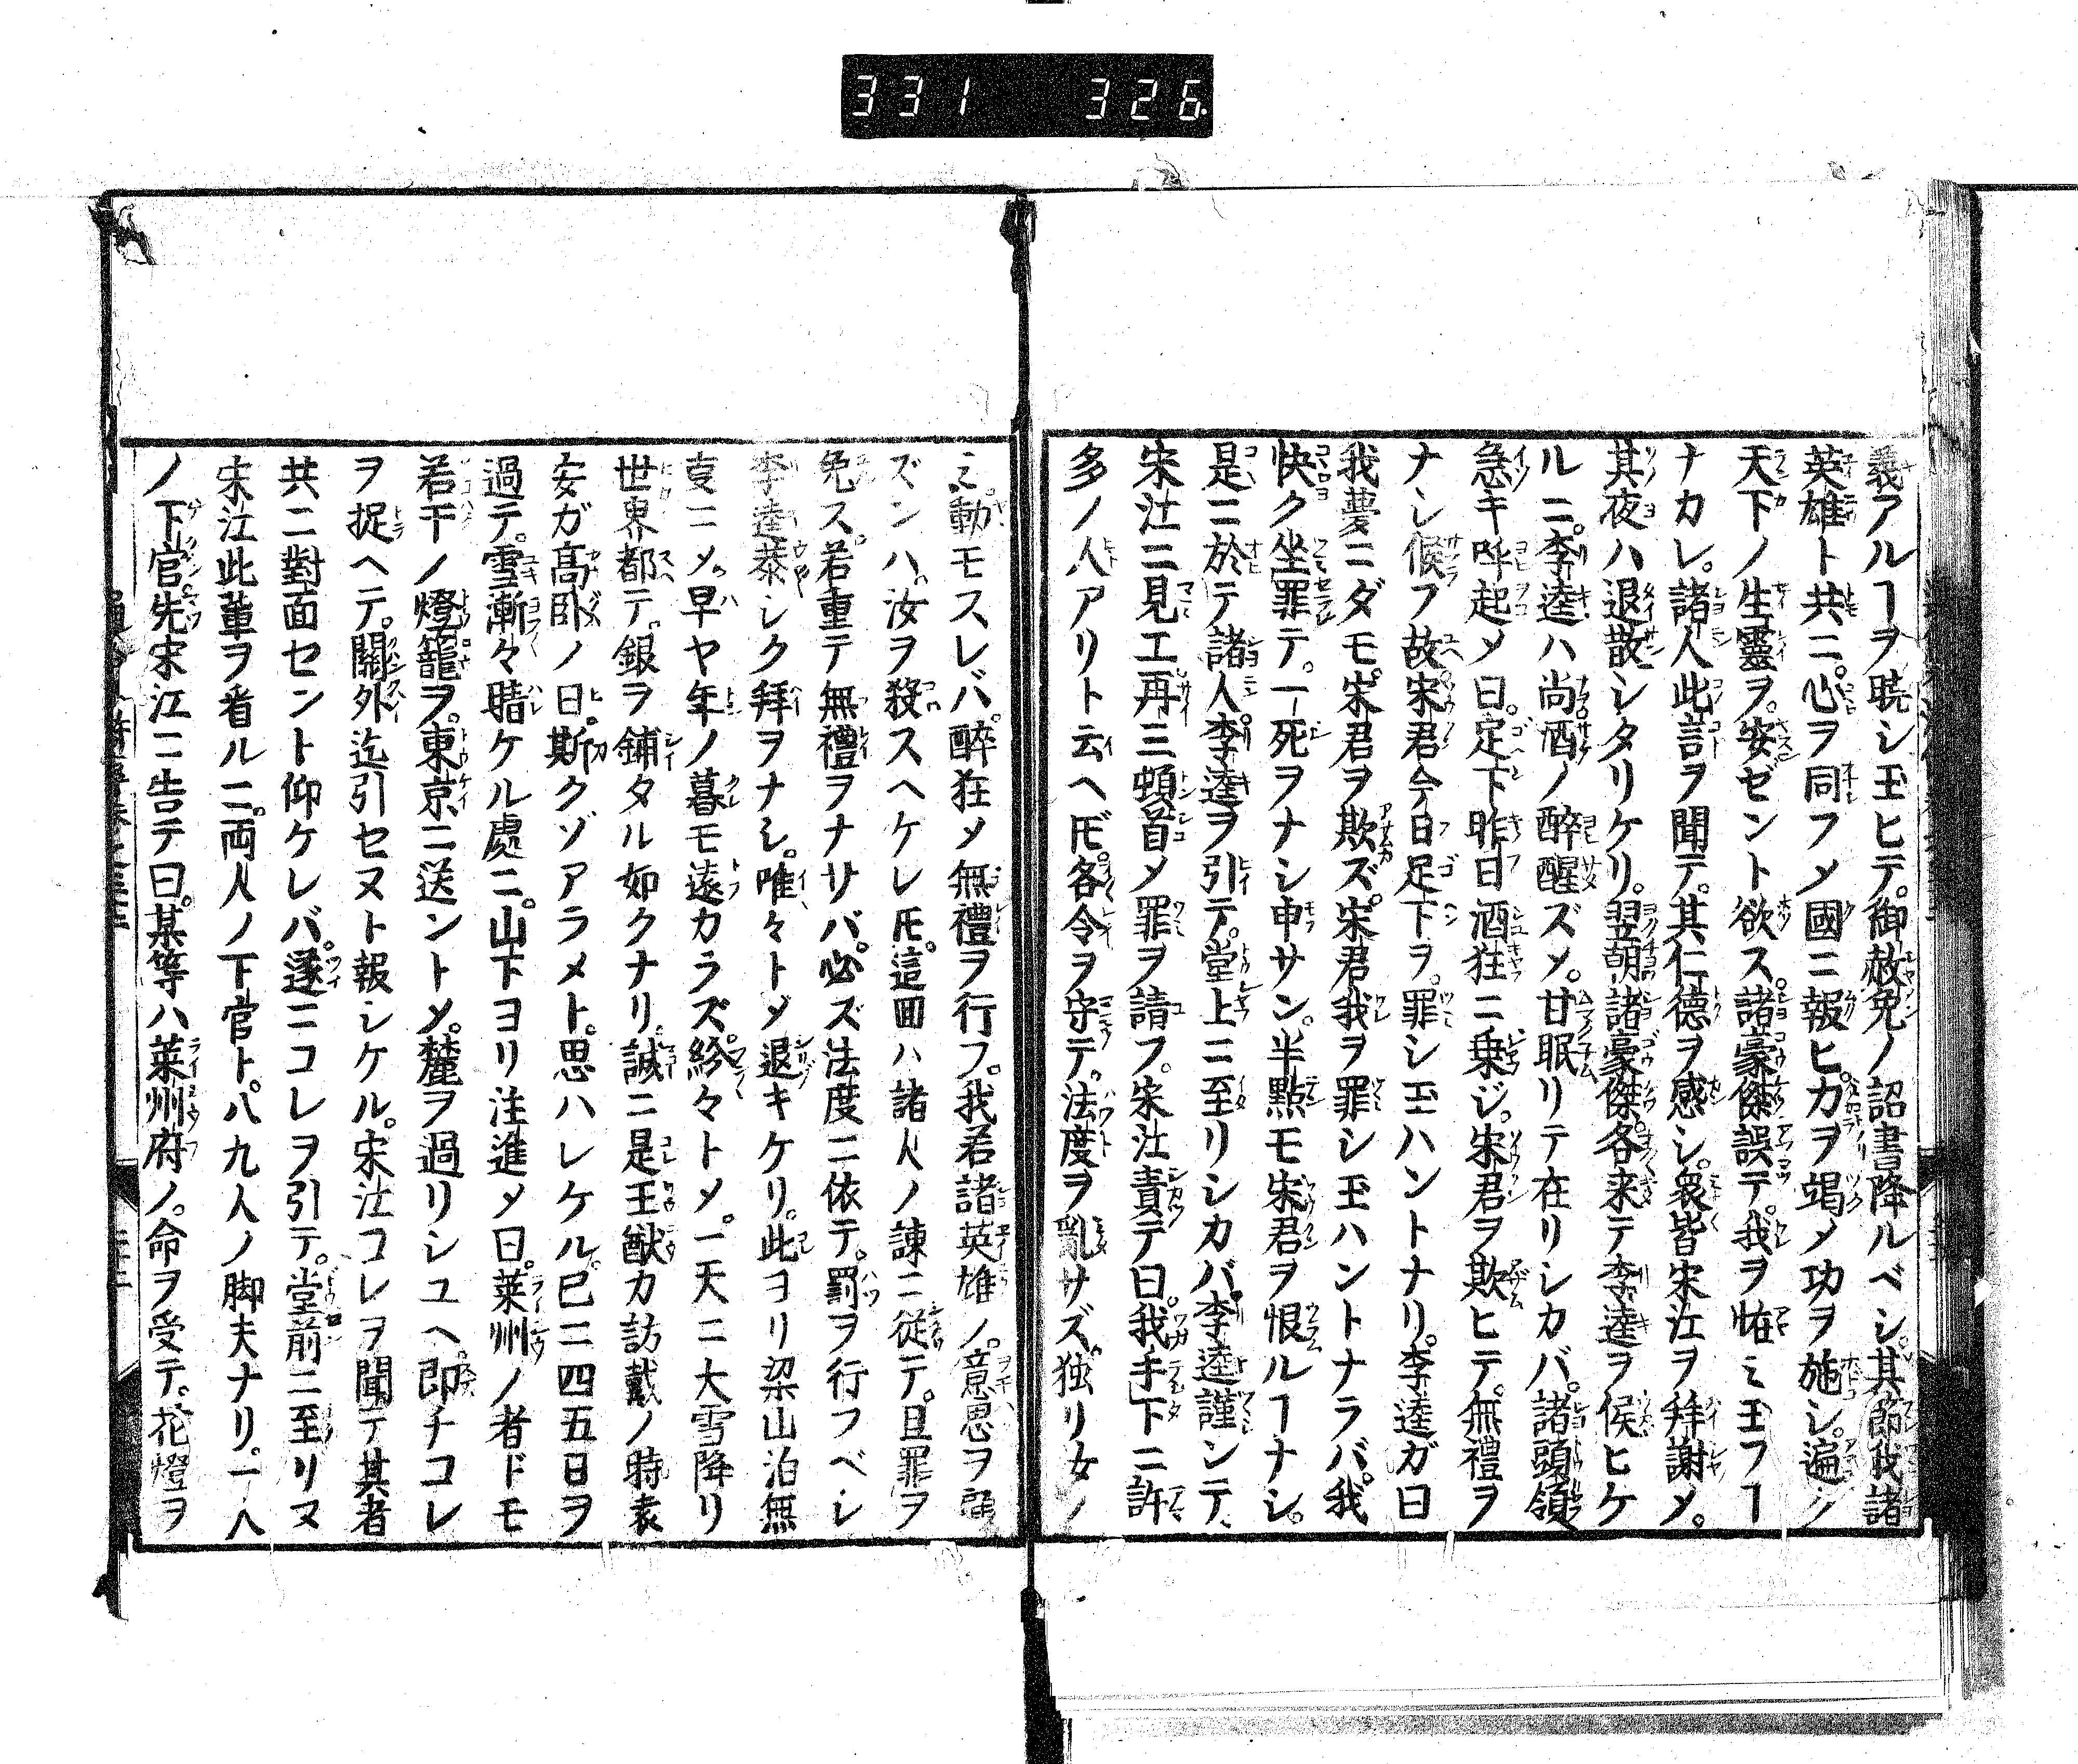 331 326
義アルヿヲ暁シ玉ヒテ。御赦免ノ詔書降ルベシ。其節我諸
英雄ト共ニ。心ヲ同フメ國ニ報ヒ。力ヲ竭メ功ヲ施シ。遍ク
天下ノ生靈ヲ。安ゼント欲ス。諸豪傑誤テ。我ヲ恠ミ玉フヿ
ナカレ。諸人此言ヲ聞テ。其仁德ヲ感シ。衆皆宋江ヲ拜謝メ。
其夜ハ退散シタリケリ。翌朝諸豪傑。各来テ李逵ヲ候ヒケ
ルニ。李逵ハ尚酒ノ醉醒ズメ。甘眠リテ在リシカバ。諸頭領
急キ呼起メ曰。足下昨日酒狂ニ乗ジ。宋君ヲ欺ヒテ。無禮ヲ
ナシ候フ故。宋君今日足下ヲ。罪シ玉ハントナリ。李逵ガ曰
我夢ニダモ。宋君ヲ欺ズ。宋君我ヲ罪シ玉ハントナラバ。我
快ク坐罪テ。一死ヲナシ申サン。半點モ宋君ヲ恨ルヿナシ。
是ニ於テ諸人。李逵ヲ引テ。堂上ニ至リシカバ。李逵謹ンテ、
宋江ニ見エ。再三頓首メ罪ヲ請フ。宋江責テ曰。我手下ニ許
多ノ人アリト云ヘ𪜈。各令ヲ守テ。法度ヲ亂サズ。独リ女ノ
ミ動モスレバ。醉狂メ無禮ヲ行フ。我若諸英雄ノ。意思ヲ顧
ズンハ。汝ヲ殺スヘケレ𪜈。這囬ハ諸人ノ諫ニ從テ。且罪ヲ
免ス。若重テ無禮ヲナサバ。必ズ法度ニ依テ。罰ヲ行フベシ
李逵恭シク拜ヲナシ。唯々トメ退キケリ。此ヨリ梁山泊無
叓ニメ。早ヤ年ノ暮モ遠カラズ。紛々トメ。一天ニ大雪降リ
世界都テ。銀ヲ鋪タル如クナリ。誠ニ是王猷カ訪戴ノ時袁
安ガ髙卧ノ日。斯クゾアラメト。思ハレケル。已ニ四五日ヲ
過テ。雪漸々晴ケル處ニ。山下ヨリ注進メ曰。萊州ノ者ドモ
若干ノ燈籠ヲ。東京ニ送ントメ。麓ヲ過リシユヘ。即チコレ
ヲ捉ヘテ。關外迄引セヌト報シケル。宋江コレヲ聞テ其者
共ニ對面セント仰ケレバ。遂ニコレヲ引テ。堂前ニ至リヌ
宋江此軰ヲ看ルニ。両人ノ下官ト。八九人ノ脚夫ナリ。一人
ノ下官。先宋江ニ告テ曰。某等ハ萊州府ノ。命ヲ受テ。花燈ヲ